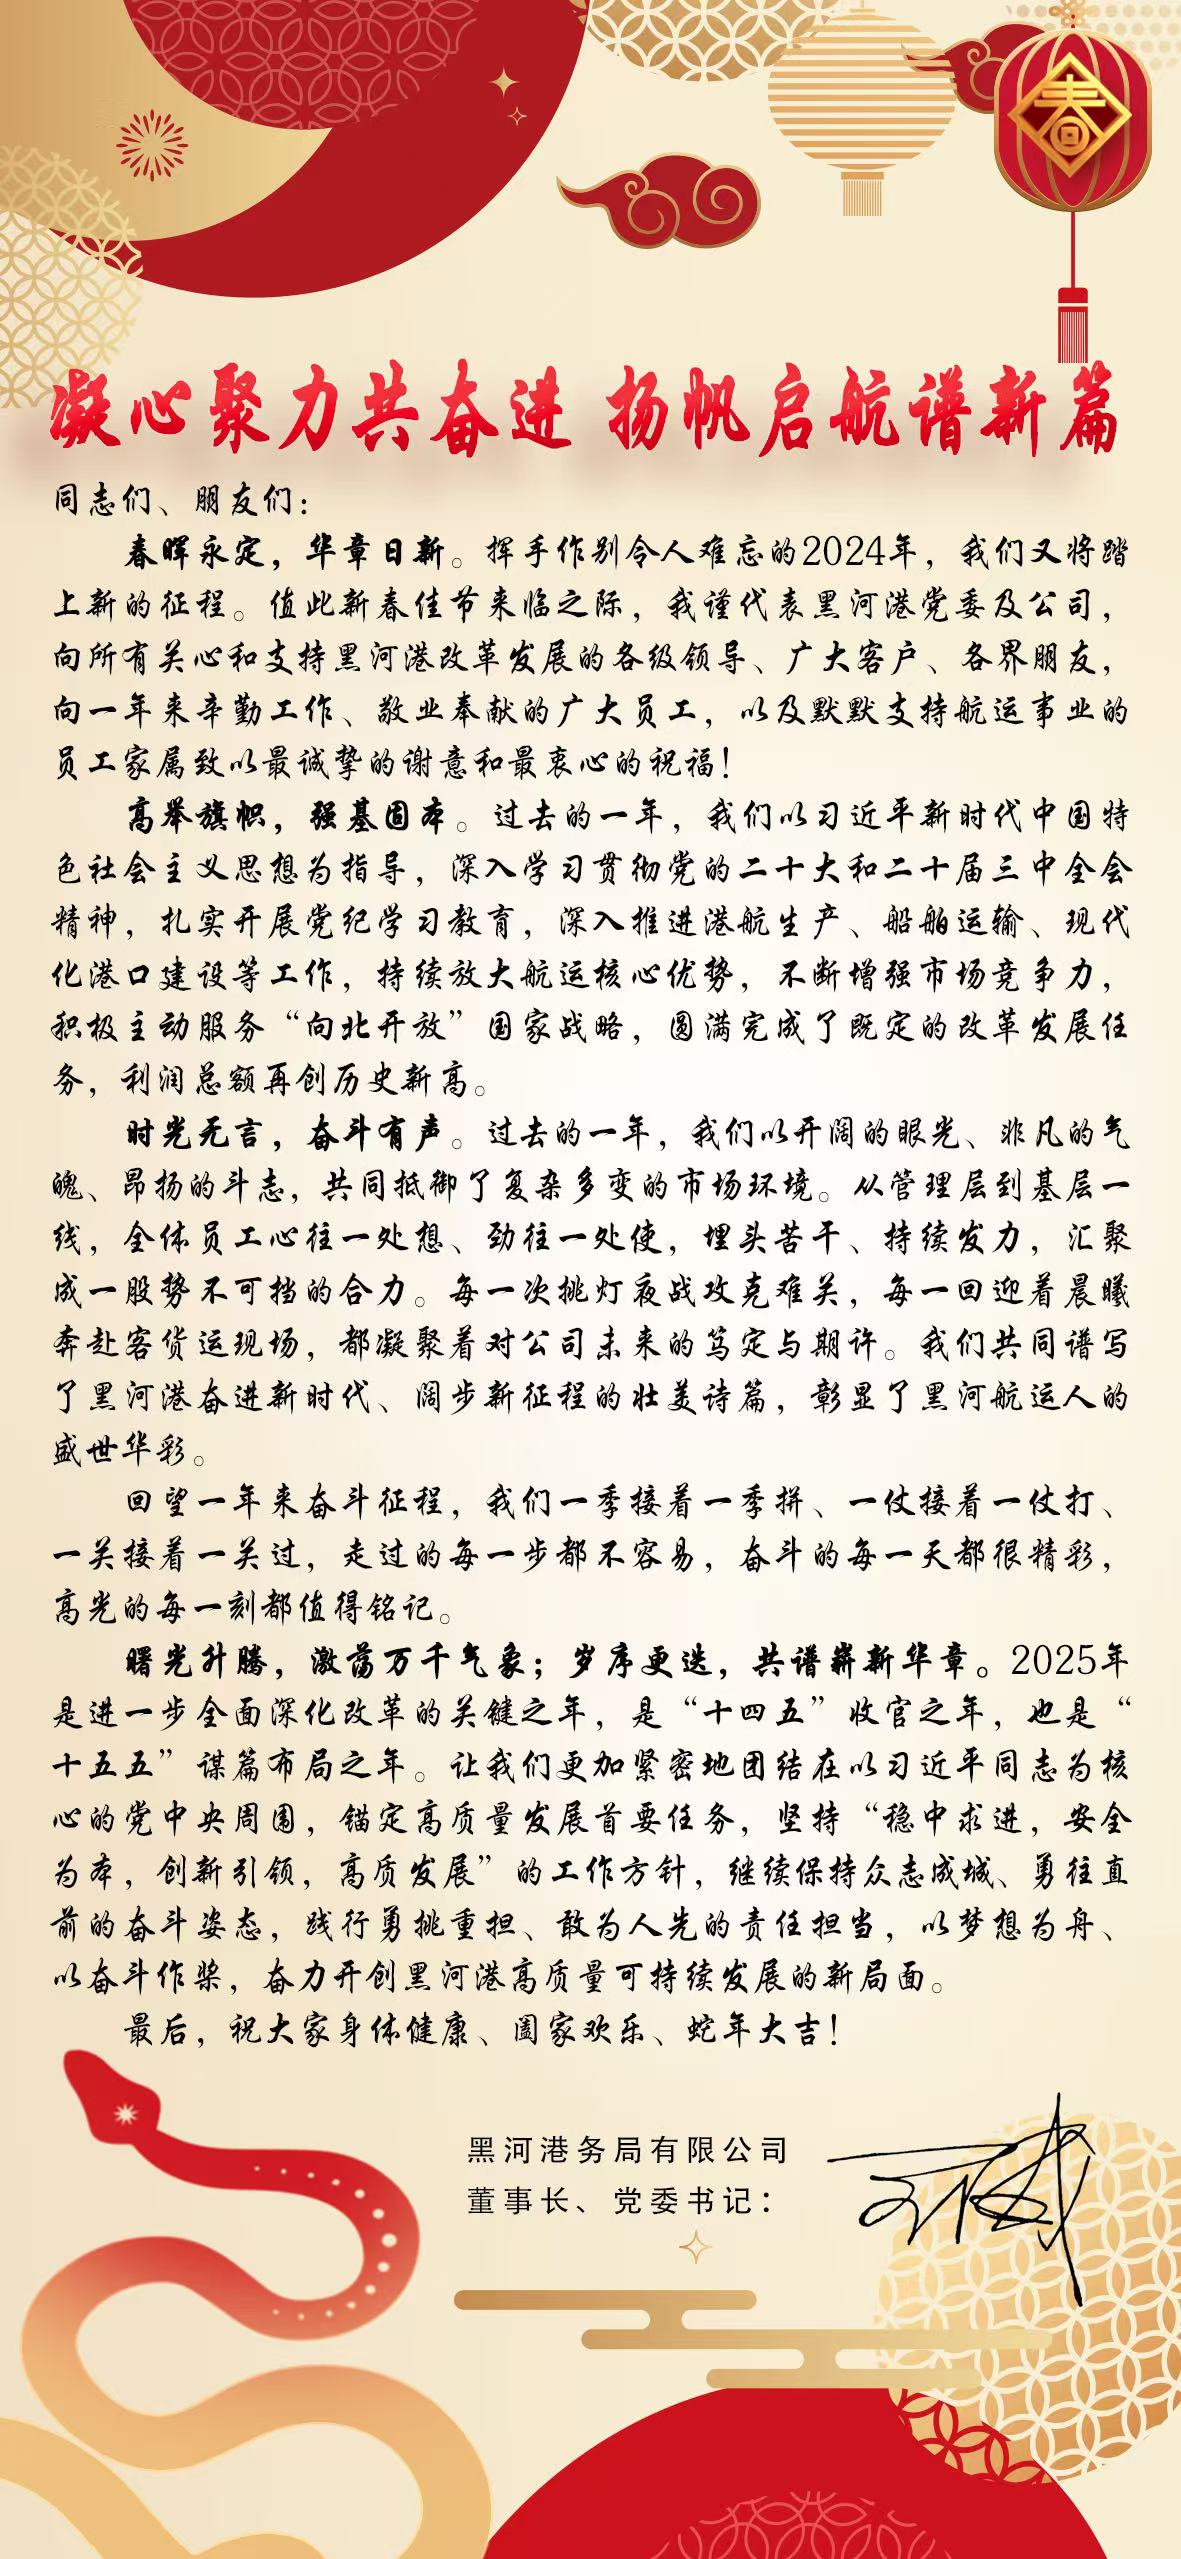 春
凝心聚力共奋进 扬帆启航谱新篇
同志们、朋友们：
春晖永定，华章日新。挥手作别令人难忘的2024年，我们又将踏
上新的征程。值此新春佳节来临之际，我谨代表黑河港党委及公司，
向所有关心和支持黑河港改革发展的各级领导、广大客户、各界朋友，
向一年来辛勤工作、敬业奉献的广大员工，以及默默支持航运事业的
员工家属致以最诚挚的谢意和最衷心的祝福！
高举旗帜，强基固本。过去的一年，我们以习近平新时代中国特
色社会主义思想为指导，深入学习贯彻党的二十大和二十届三中全会
精神，扎实开展党纪学习教育，深入推进港航生产、船舶运输、现代
化港口建设等工作，持续放大航运核心优势，不断增强市场竞争力，
积极主动服务“向北开放”国家战略，圆满完成了既定的改革发展任
务，利润总额再创历史新高。
时光无言，奋斗有声。过去的一年，我们以开阔的眼光、非凡的气
魄、昂扬的斗志，共同抵御了复杂多变的市场环境。从管理层到基层一
线，全体员工心往一处想、劲往一处使，埋头苦干、持续发力，汇聚
成一股势不可挡的合力。每一次挑灯夜战攻克难关，每一回迎着晨曦
奔赴客货运现场，都凝聚着对公司未来的笃定与期许。我们共同谱写
了黑河港奋进新时代、阔步新征程的壮美诗篇，彰显了黑河航运人的
盛世华彩。
回望一年来奋斗征程，我们一季接着一季拼、一仗接着一仗打、
一关接着一关过，走过的每一步都不容易，奋斗的每一天都很精彩，
高光的每一刻都值得铭记。
曙光升腾，激荡万千气象；岁序更迭，共谱崭新华章。2025年
是进一步全面深化改革的关键之年，是“十四五”收官之年，也是“
十五五”谋篇布局之年。让我们更加紧密地团结在以习近平同志为核
心的党中央周围，锚定高质量发展首要任务，坚持“稳中求进，安全
为本，创新引领，高质发展”的工作方针，继续保持众志成城、勇往直
前的奋斗姿态，践行勇挑重担、敢为人先的责任担当，以梦想为舟、
以奋斗作桨，奋力开创黑河港高质量可持续发展的新局面。
最后，祝大家身体健康、阖家欢乐、蛇年大吉！
黑河港务局有限公司
董事长、党委书记：